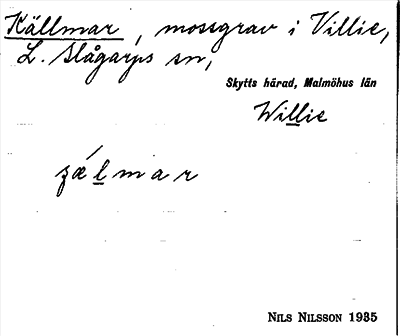 Källmar, mossgrav i Villie,
L. Slågarps sn,
Skytts härad, Malmöhus län
Willie
ʒǽlmar
NILS NILSSON 1935